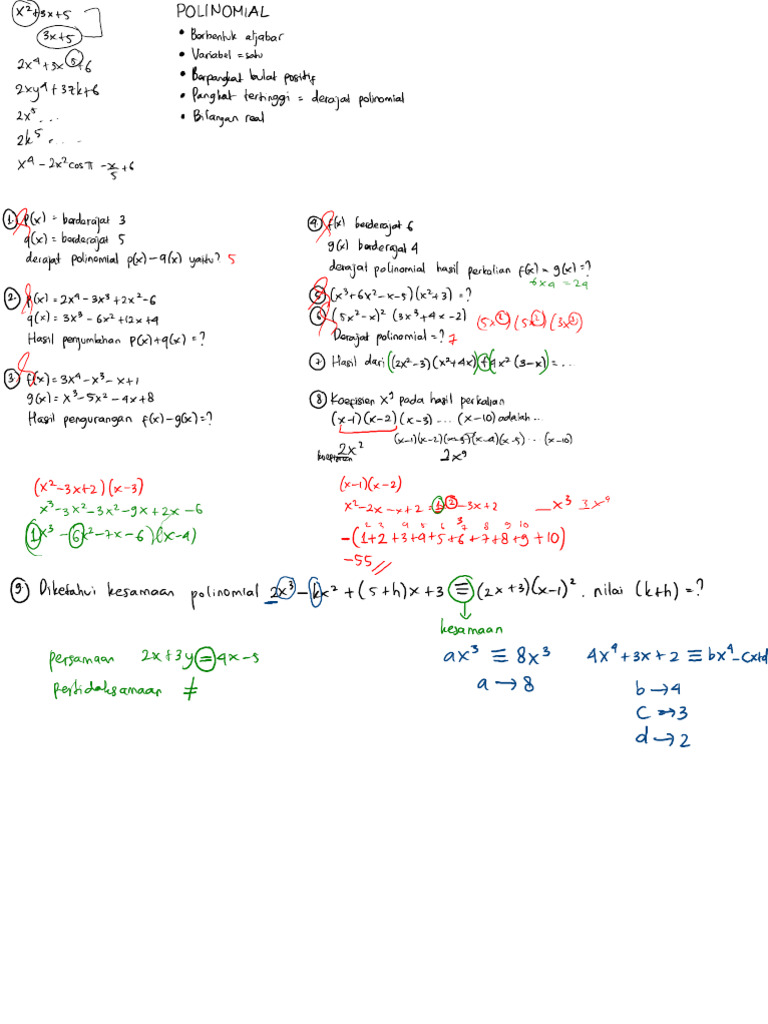 x² + 3x + 5
3x + 5
2x⁴ + 3x⁵ + 6
2xy⁴ + 37k + 6
2x⁵ ...
2k⁵ ....
x⁴ - 2x² cos π - x/5 + 6
POLINOMIAL
• Berbentuk aljabar
• Variabel = satu
• Berpangkat bulat positif
• Pangkat tertinggi = derajat polinomial
• Bilangan real
① p(x) = berderajat 3
q(x) = berderajat 5
derajat polinomial p(x) - q(x) yaitu? 5
② p(x) = 2x⁴ - 3x³ + 2x² - 6
q(x) = 3x³ - 6x² + 12x + 4
Hasil penjumlahan p(x) + q(x) = ?
③ f(x) = 3x⁴ - x³ - x + 1
g(x) = x³ - 5x² - 4x + 8
Hasil pengurangan f(x) - g(x) = ?
④ f(x) berderajat 6
g(x) berderajat 4
derajat polinomial hasil perkalian f(x) - g(x) = ?
6 x 4 = 24
⑤ (x³ + 6x² - x - 5)(x² + 3) = ?
⑥ (5x² - x)² (3x³ + 4x - 2) (5x²)(5x²)(3x³)
Derajat polinomial = ? 7
⑦ Hasil dari ((2x² - 3)(x² + 4x) + 4x² (3 - x) = ...
⑧ Koefisien x⁹ pada hasil perkalian
(x-1)(x-2)(x-3) .... (x-10) adalah ..
(x-1)(x-2)(x-3)(x-4)(x-5) ... (x-10)
2x² 2x⁹
koefisien
(x² - 3x + 2)(x - 3)
x³ - 3x² - 3x² - 9x + 2x - 6
1x³ - 6x² - 7x - 6)(x - 4)
(x-1)(x-2)
x² - 2x - x + 2 = 1x² - 3x + 2 _x³ 3x⁹
2 3 4 5 6 7 8 9 10
-(1+2+3+4+5+6+7+8+9+10)
-55 //
⑨ Diketahui kesamaan polinomial 2x³ - kx² + (5+h)x + 3 ≡ (2x+3)(x-1)². nilai (k+h) = ?
kesamaan
persamaan 2x + 3y = 4x - 5
pertidaksamaan ≠
ax³ ≡ 8x³
a → 8
4x⁴ + 3x + 2 ≡ bx⁴ - cx + d
b → 4
c → 3
d → 2